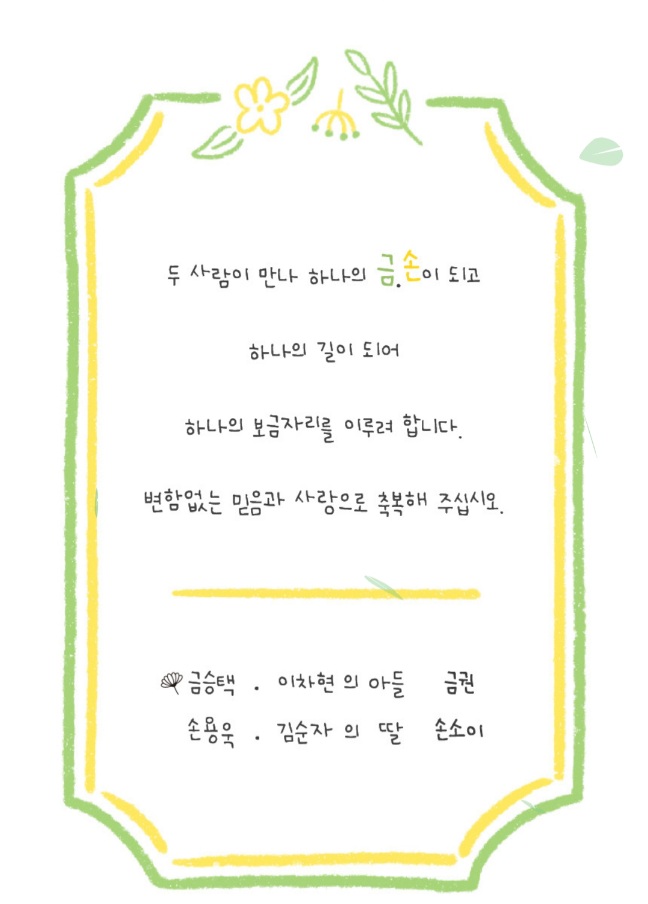 두 사람이 만나 하나의 금.손이 되고
하나의 길이 되어
하나의 보금자리를 이루려 합니다.
변함없는 믿음과 사랑으로 축복해 주십시오.
금승택 . 이차현 의 아들 금권
손용욱 . 김순자 의 딸 손소이